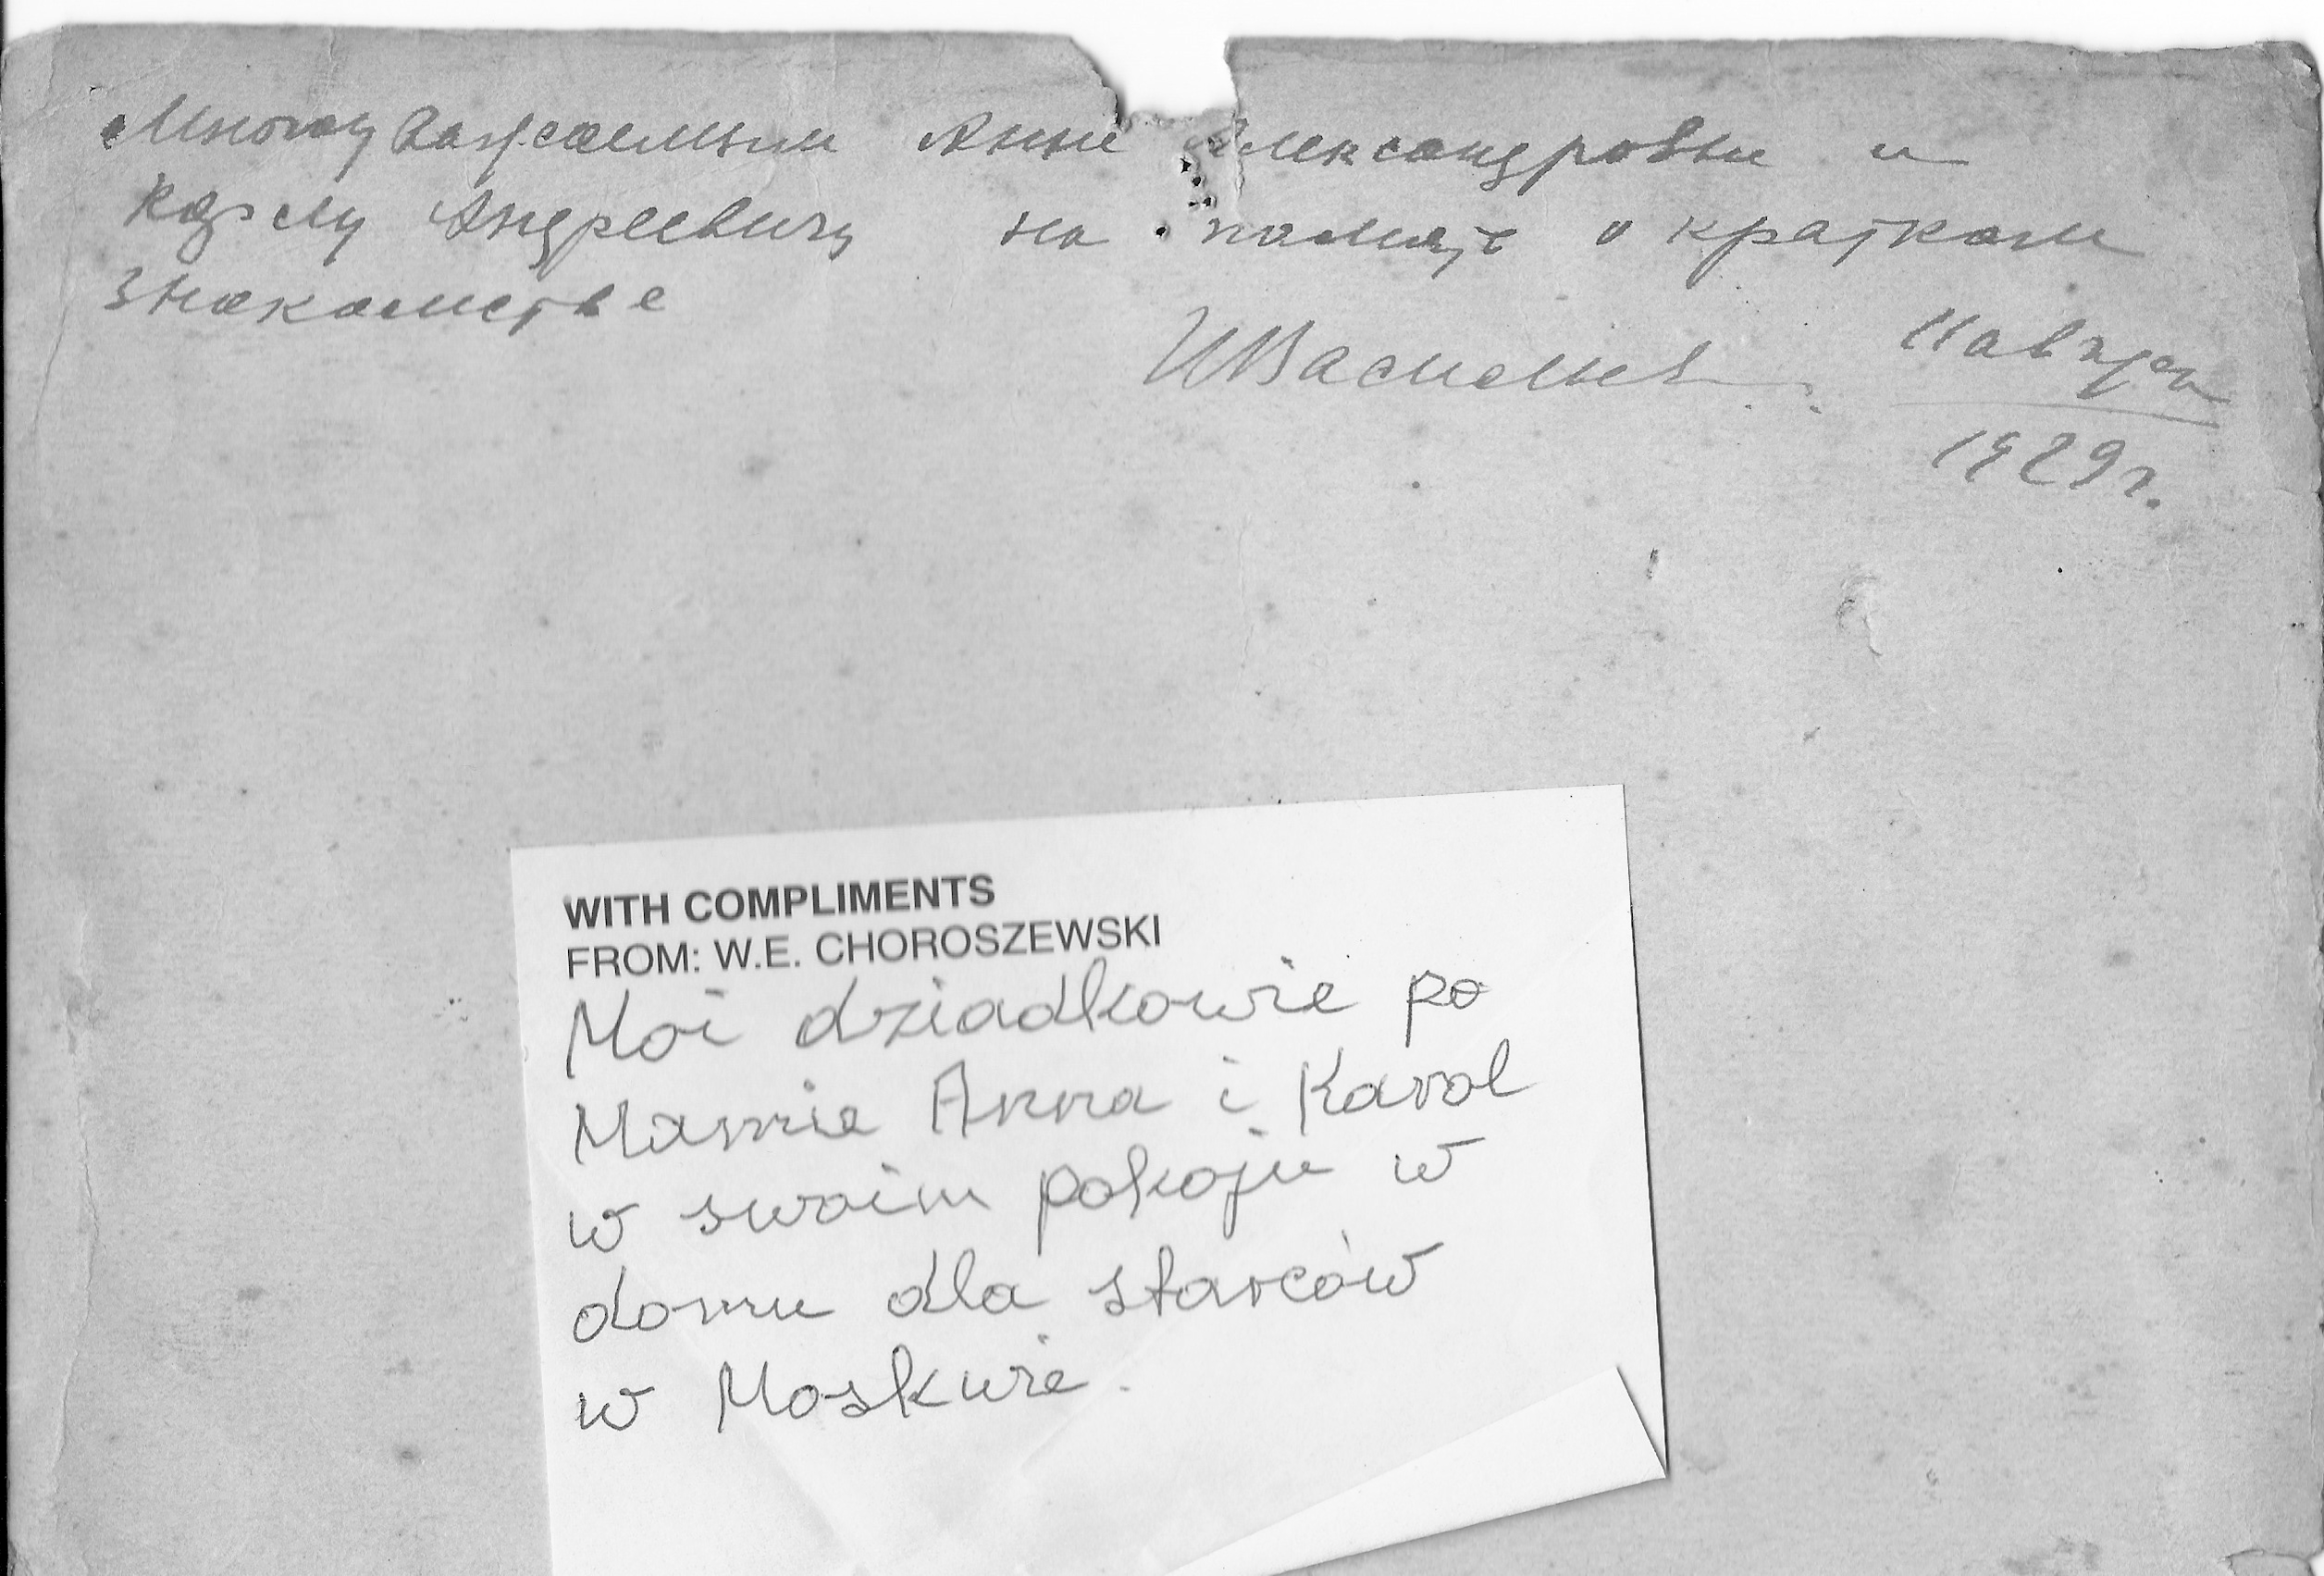 Многоуважаемым Анне Александровне и
Карлу Андреевичу на память о кратком
знакомстве
11 августа
1929 г.
WITH COMPLIMENTS
FROM: W.E. CHOROSZEWSKI
Moi dziadkowie po
Mamie Anna i Karol
w swoim pokoju w
domu dla starców
w Moskwie.